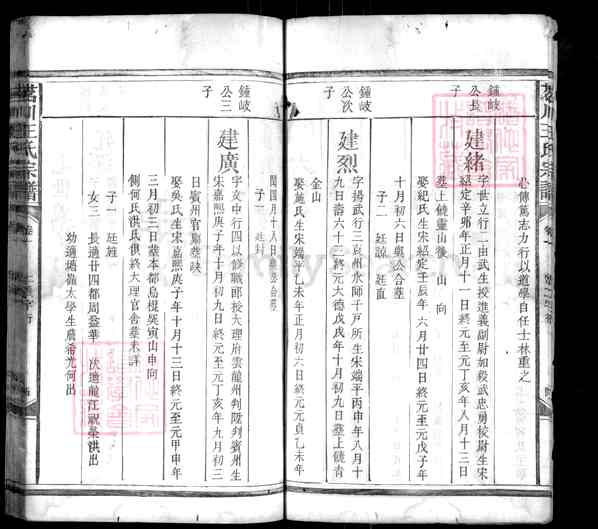 心傳篤志力行以道學自任士林重之
鍾岐
公長
子
建緒
字世立行二由武生授進義副尉如殺武忠勇校尉生宋
紹定辛卯年正月十一日終元至元丁亥年八月十三日
墓上饒靈山後 山 向
娶紀氏生宋紹定壬辰年六月廿四日終元至元戊子年
十月初六日與公合墓
子二 廷諒 廷直
鍾岐
公次
子
建烈
字揚武行三袁州永師千戶所生宋端平丙申年八月十
九日壽六十三終元大德戊戌年十月初九日墓上饒青
金山
娶施氏生宋端平乙未年正月初六日終元元貞乙未年
閏四月十八日與公合墓
子一 廷封
鍾岐
公三
子
建廣
字文中行四以修職郎授大理府雲龍州判陞判賓州生
宋嘉熙庚子年十月初九日終元至元丁亥年九月初三
日賓州官舍墓缺
娶吳氏生宋嘉熙庚子年十月十三日終元至元甲申年
三月初三日墓本都烏棍吳寅山申向
側何氏洪氏俱終大理官舍墓未詳
子一 廷雍
女三 長適廿四都周益華 次適龍江祝榮洪出
幼適 太學生詹希尤何出
川王氏宗譜
卷一